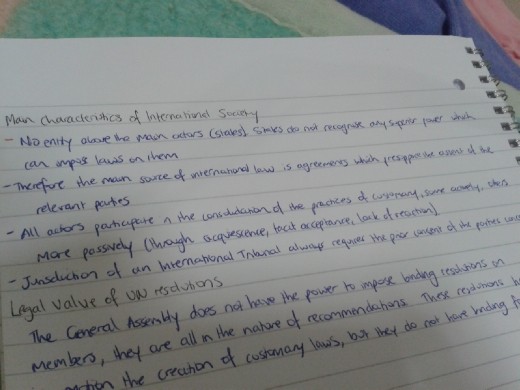 Main characteristics of International Society
- No entity above the main actors (states) States do not recognise any superior power which
can impose laws on them
- Therefore the main source of international law is agreements which presuppose the assent of the
relevant parties
- All actors participate in the consolidation of the practices of customary, some actively, others
more passively (through acquiescence, tacit acceptance, lack of reaction)
- Jurisdiction of an International Tribunal always requires the prior consent of the parties
Legal Value of UN resolutions
The General Assembly does not have the power to impose binding resolutions on
Members, they are all in the nature of recommendations. These resolutions
the creation of customary laws, but they do not have binding